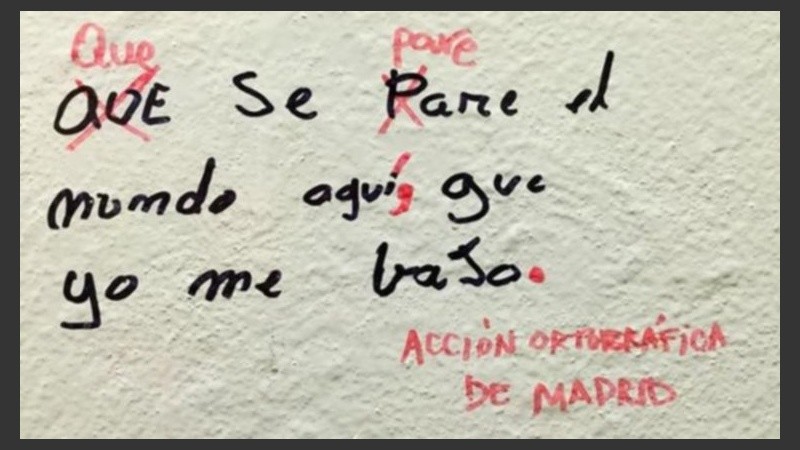 Que pare
QUE se Pare el
mundo aquí, que
yo me bajo.
ACCIÓN ORTOGRÁFICA
DE MADRID